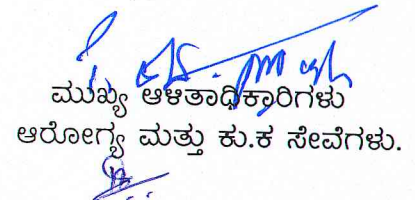 ಮುಖ್ಯ ಆಳಿತಾಧಿಕಾರಿಗಳು
ಆರೋಗ್ಯ ಮತ್ತು ಕು.ಕ ಸೇವೆಗಳು.